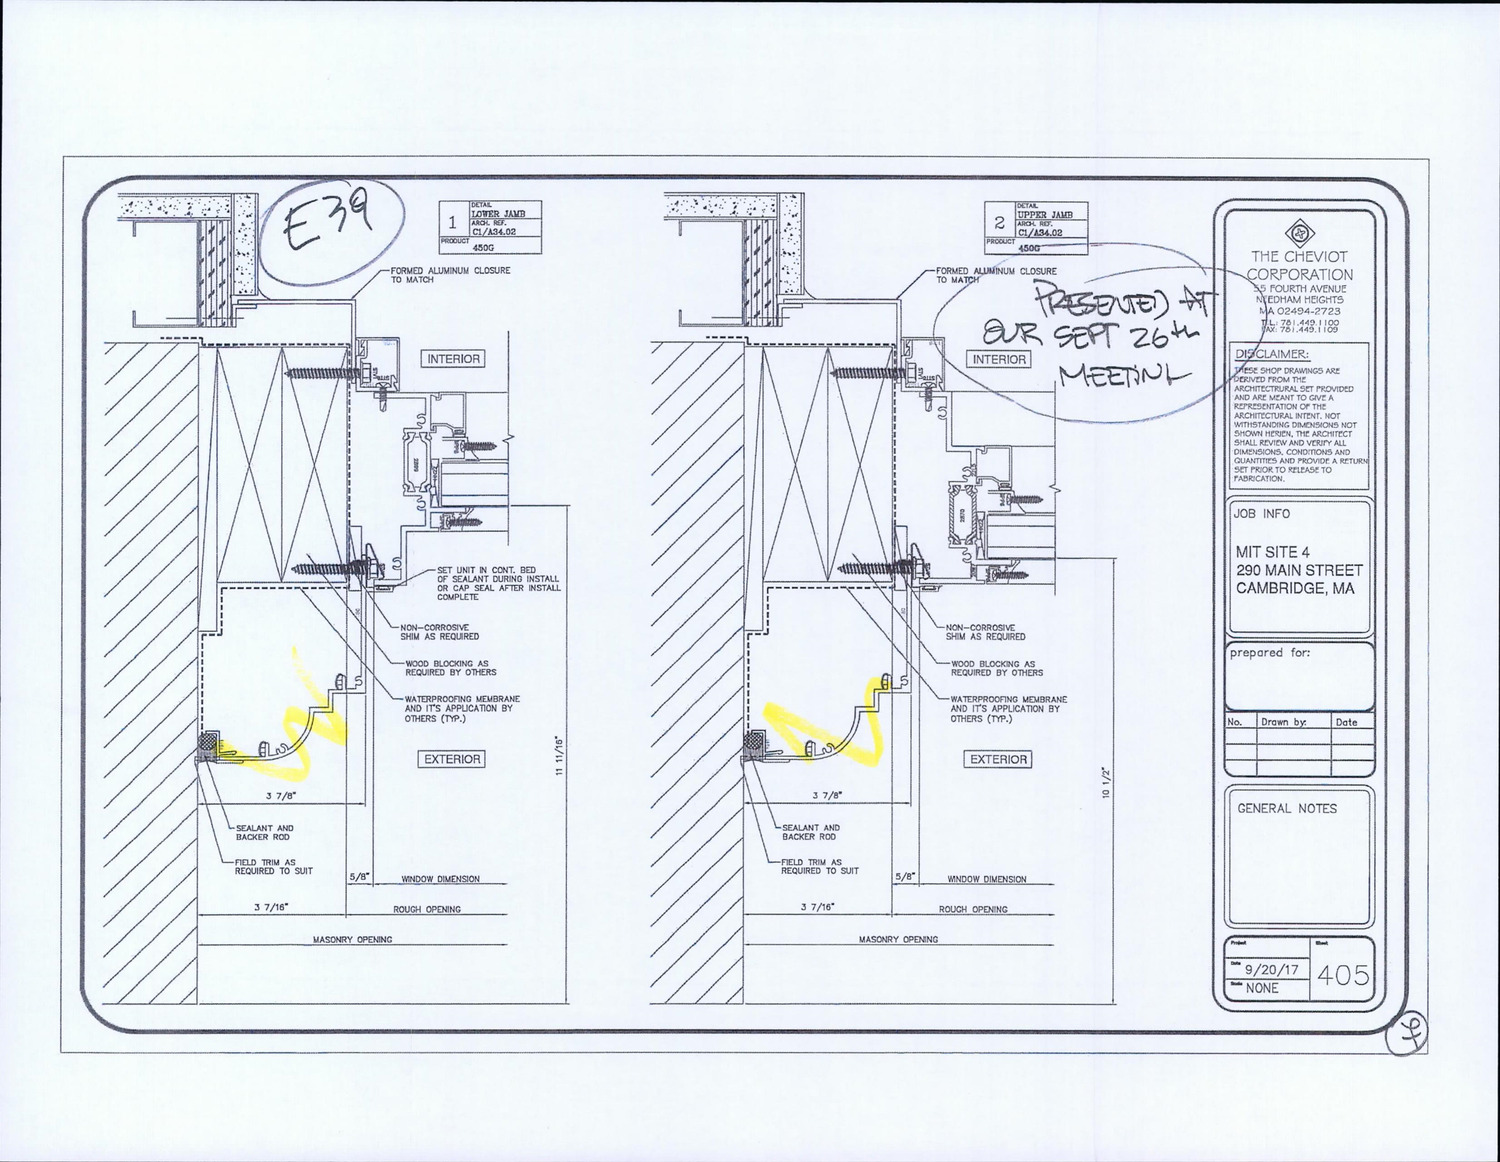 E39
1
DETAIL
LOWER JAMB
ARCH. REF.
C1/A34.02
PRODUCT
450G
FORMED ALUMINUM CLOSURE
TO MATCH
INTERIOR
SET UNIT IN CONT. BED
OF SEALANT DURING INSTALL
OR CAP SEAL AFTER INSTALL
COMPLETE
NON-CORROSIVE
SHIM AS REQUIRED
WOOD BLOCKING AS
REQUIRED BY OTHERS
WATERPROOFING MEMBRANE
AND IT'S APPLICATION BY
OTHERS (TYP.)
EXTERIOR
11 11/16"
3 7/8"
SEALANT AND
BACKER ROD
FIELD TRIM AS
REQUIRED TO SUIT
5/8"
WINDOW DIMENSION
3 7/16"
ROUGH OPENING
MASONRY OPENING
2
DETAIL
UPPER JAMB
ARCH. REF.
C1/A34.02
PRODUCT
450G
FORMED ALUMINUM CLOSURE
TO MATCH
PRESENTED AT
OUR SEPT 26th
MEETING
INTERIOR
NON-CORROSIVE
SHIM AS REQUIRED
WOOD BLOCKING AS
REQUIRED BY OTHERS
WATERPROOFING MEMBRANE
AND IT'S APPLICATION BY
OTHERS (TYP.)
EXTERIOR
10 1/2"
3 7/8"
SEALANT AND
BACKER ROD
FIELD TRIM AS
REQUIRED TO SUIT
5/8"
WINDOW DIMENSION
3 7/16"
ROUGH OPENING
MASONRY OPENING
THE CHEVIOT
CORPORATION
55 FOURTH AVENUE
NEEDHAM HEIGHTS
MA 02494-2723
TEL: 781.449.1100
FAX: 781.449.1109
DISCLAIMER:
THESE SHOP DRAWINGS ARE
DERIVED FROM THE
ARCHITECTRURAL SET PROVIDED
AND ARE MEANT TO GIVE A
REPRESENTATION OF THE
ARCHITECTURAL INTENT. NOT
WITHSTANDING DIMENSIONS NOT
SHOWN HERIEN, THE ARCHITECT
SHALL REVIEW AND VERIFY ALL
DIMENSIONS, CONDITIONS AND
QUANTITIES AND PROVIDE A RETURN
SET PRIOR TO RELEASE TO
FABRICATION.
JOB INFO
MIT SITE 4
290 MAIN STREET
CAMBRIDGE, MA
prepared for:
No. Drawn by: Date
GENERAL NOTES
Project
Sheet
Date 9/20/17
405
Scale NONE